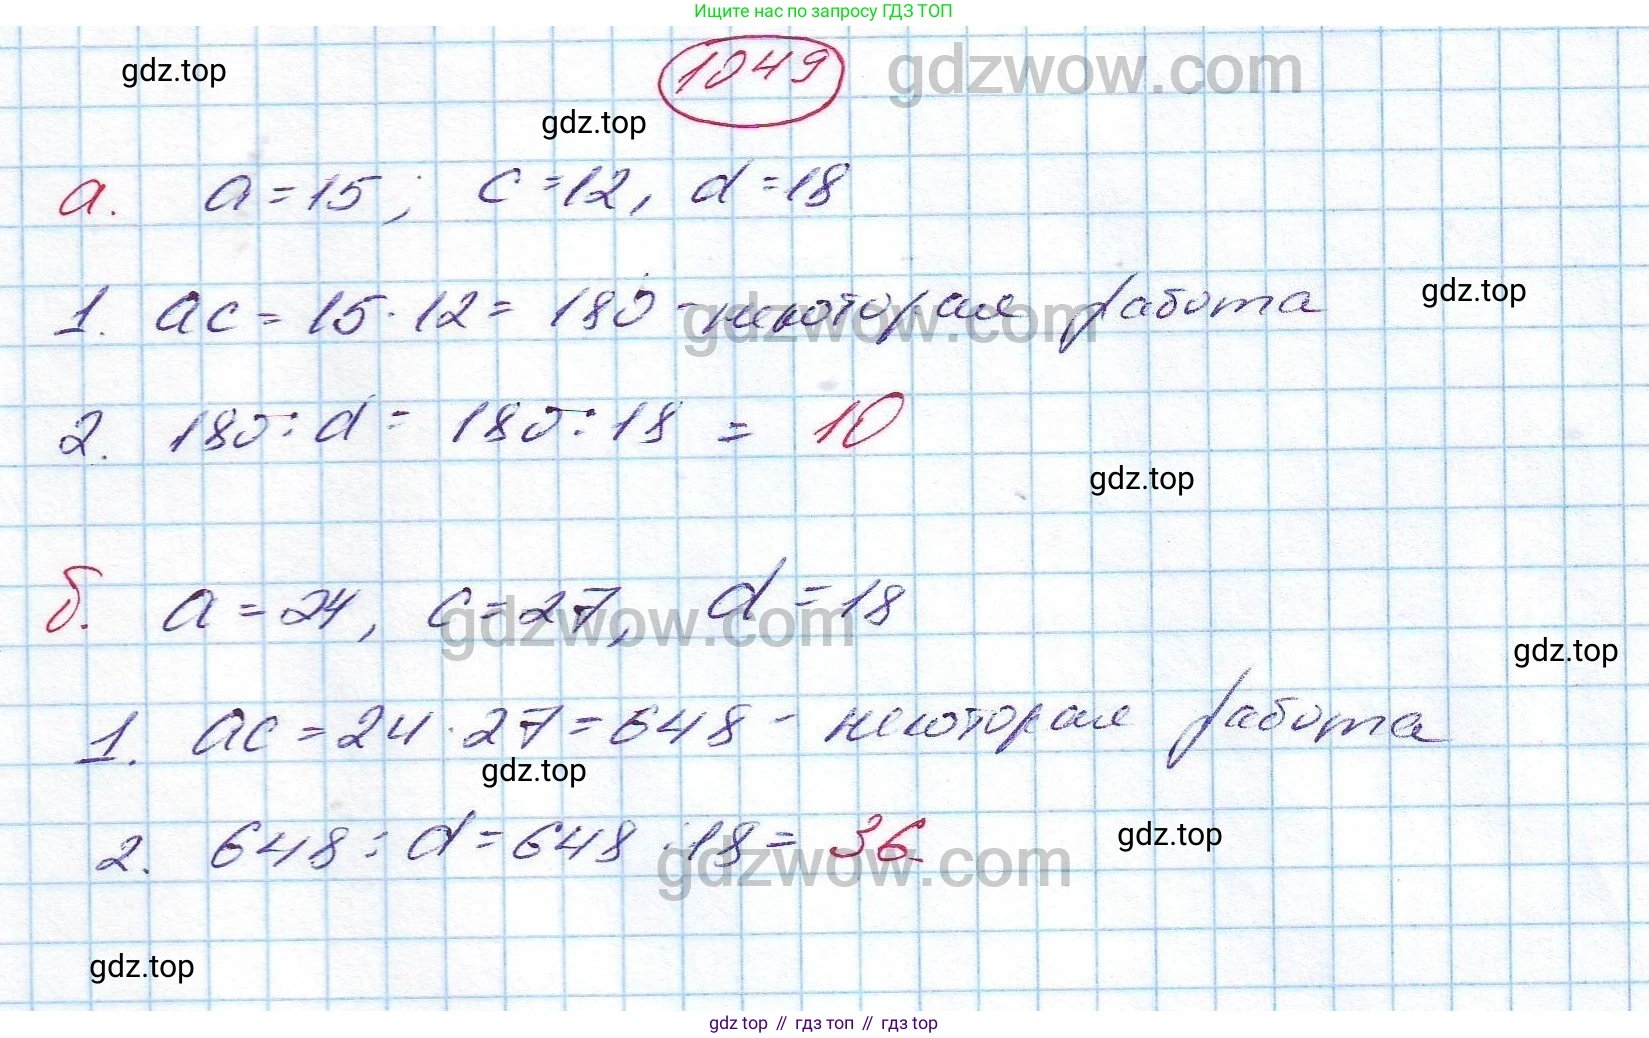 Ищите нас по запросу ГДЗ ТОП
1049 gdzwow.com
gdz.top
gdz.top
а. a = 15; c = 12, d = 18
gdz.top
1. ac = 15 · 12 = 180 - некоторая работа
gdzwow.com
2. 180 : d = 180 : 18 = 10
gdz.top
б. a = 24, c = 27, d = 18
gdzwow.com
gdz.top
1. ac = 24 · 27 = 648 - некоторая работа
gdz.top
2. 648 : d = 648 : 18 = 36.
gdz.top
gdzwow.com
gdz.top
gdz top // гдз топ // гдз top